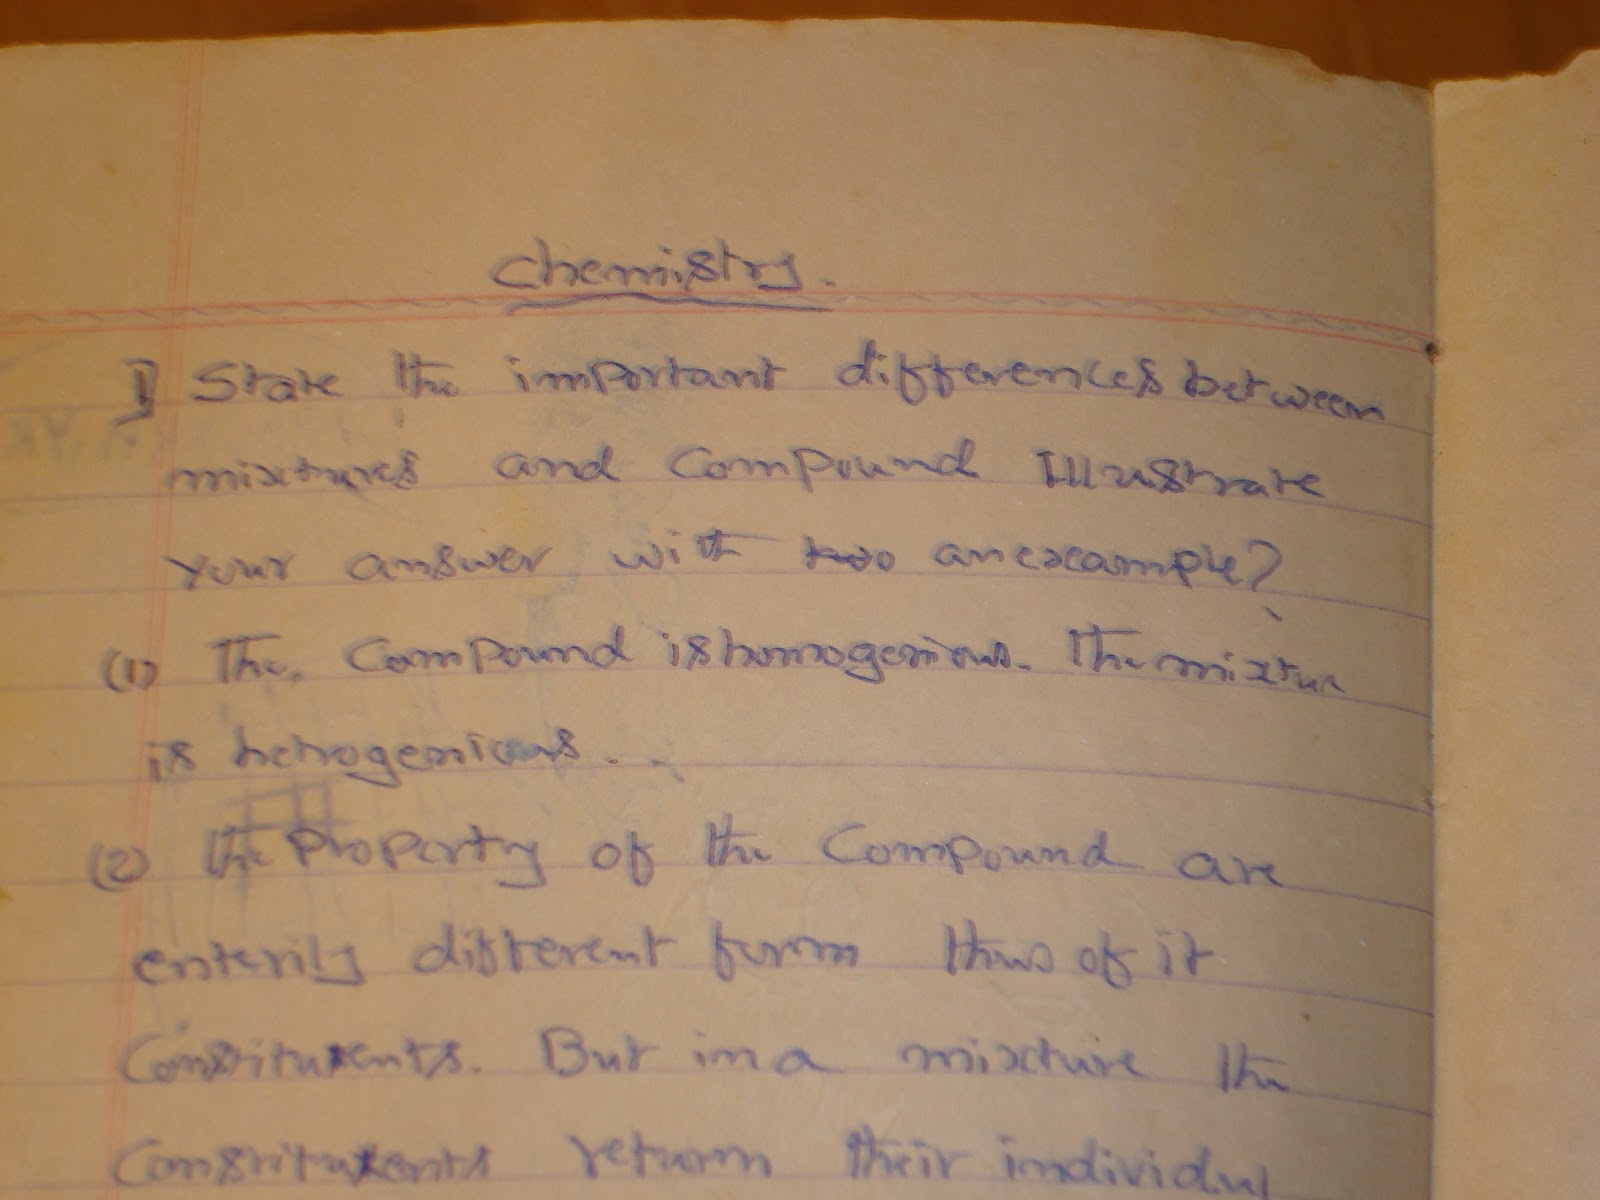 Chemistry.
1] State the important differences between
mixtures and Compound Illustrate
your answer with two an example?
(1) The. Compound is homogenious. The mixture
is hetrogenious..
(2) the Property of the Compound are
enterily different form thus of it
Constituents. But in a mixture the
Constituents return their individul